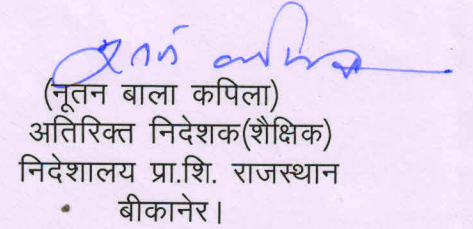 (नूतन बाला कपिला)
अतिरिक्त निदेशक(शैक्षिक)
निदेशालय प्रा.शि. राजस्थान
बीकानेर।